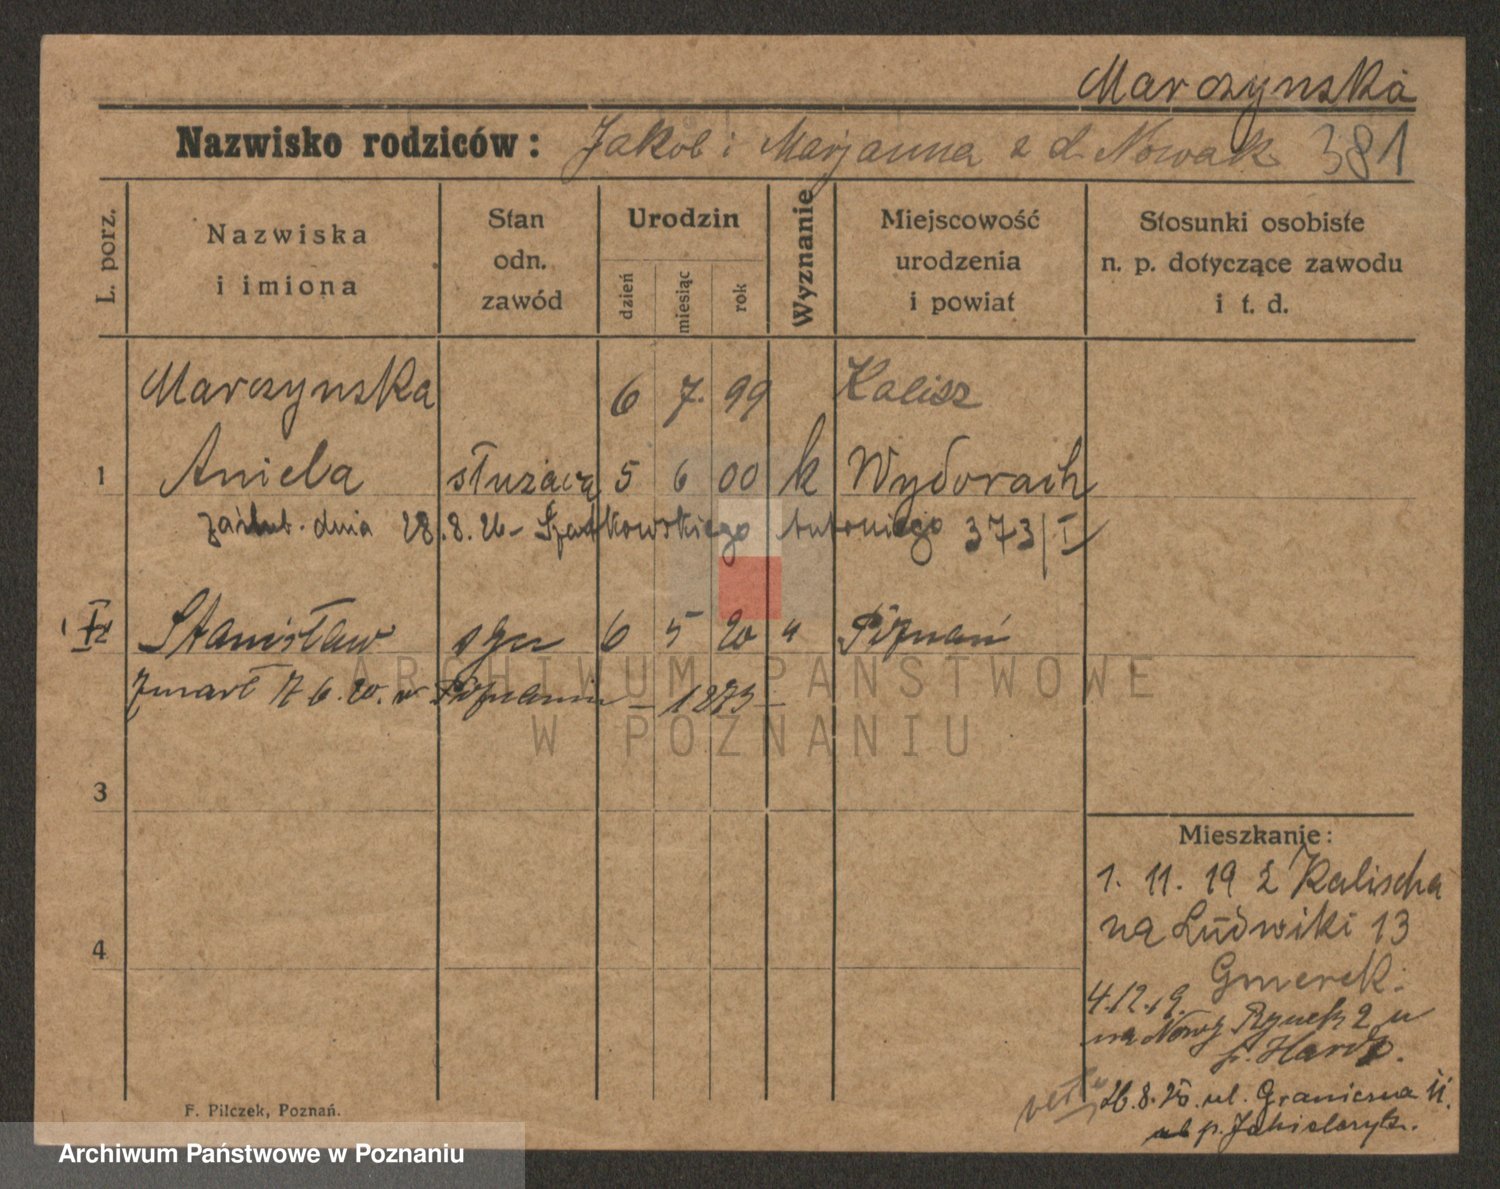 Marczynska
Nazwisko rodziców: Jakob i Marjanna z d. Nowak 381
L. porz.
Nazwiska
i imiona
Stan
odn.
zawód
Urodzin
dzień
miesiąc
rok
Wyznanie
Miejscowość
urodzenia
i powiat
Stosunki osobiste
n. p. dotyczące zawodu
i t. d.
Marczynska 6 7. 99 Kalisz
1 Aniela służącą 5 6 00 k Wydorach
zaślub. dnia 28.8.26 - Antoniego 373/I
Stanisław 6 5 20 " Poznań
zmarł 17 6. 20. w Poznaniu - 1873 -
ARCHIWUM PAŃSTWOWE
W POZNANIU
3
4
Mieszkanie:
1. 11. 19 z Kalischa
na Ludwiki 13
Gmerek.
4.12.19.
na Nowy Rynek 2 u
p.
26.8.25. ul. Graniczna 11.
p.
F. Pilczek, Poznań.
Archiwum Państwowe w Poznaniu